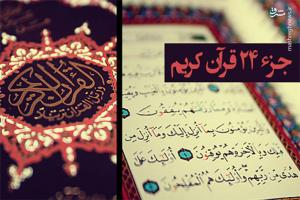 جزء ۲۴ قرآن کریم
القرآن الكريم
يُؤْمِنُونَ بِمَا أُنْزِلَ إِلَيْكَ وَمَا أُنْزِلَ مِنْ
قَبْلِكَ وَبِالْآخِرَةِ هُمْ يُوقِنُونَ أُولَئِكَ عَلَى
هُدًى مِنْ رَبِّهِمْ وَأُولَئِكَ هُمُ الْمُفْلِحُونَ
مشرق
mashreghnews.ir